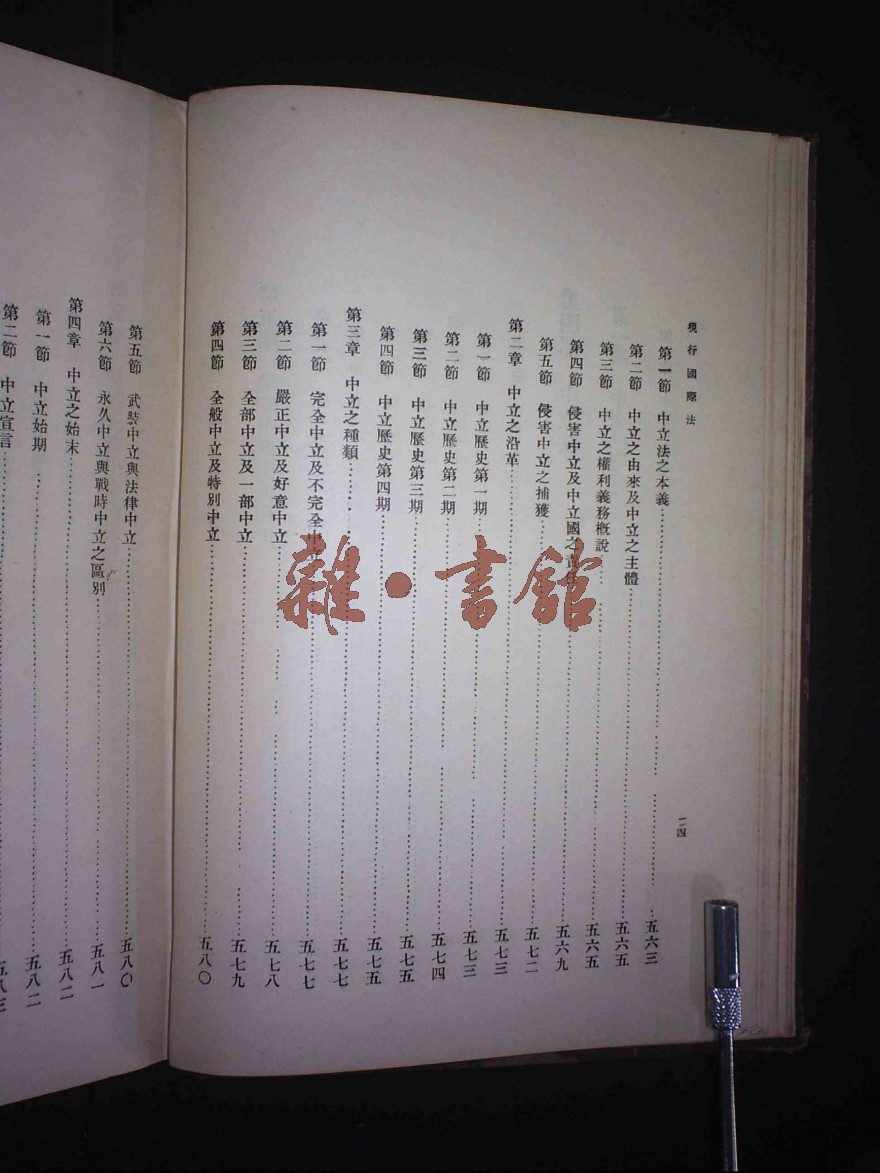 現行國際法
第一節 中立法之本義……五六三
第二節 中立之由來及中立之主體……五六五
第三節 中立之權利義務概說……五六五
第四節 侵害中立及中立國之……五六九
第五節 侵害中立之捕獲……五七二
第二章 中立之沿革……五七三
第一節 中立歷史第一期……五七三
第二節 中立歷史第二期……五七四
第三節 中立歷史第三期……五七五
第四節 中立歷史第四期……五七五
第三章 中立之種類……五七七
第一節 完全中立及不完全中立……五七七
第二節 嚴正中立及好意中立……五七八
第三節 全部中立及一部中立……五七九
第四節 全般中立及特別中立……五八〇
一四
第五節 武裝中立與法律中立……五八〇
第六節 永久中立與戰時中立之區別……五八一
第四章 中立之始末……五八二
第一節 中立始期……五八二
第二節 中立宣言……五八三
雜·書館